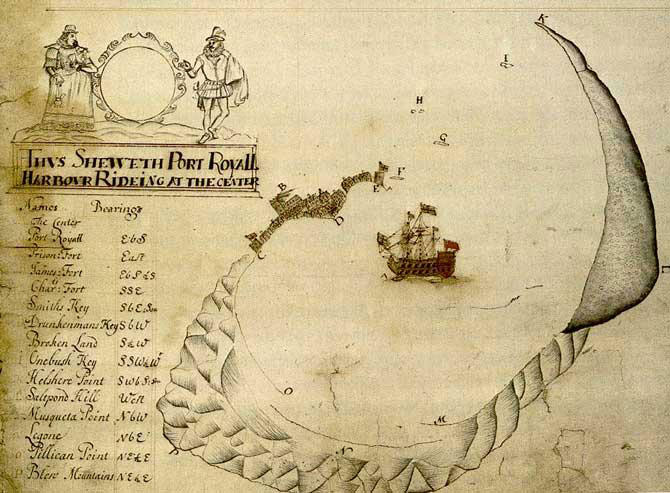 Thus Sheweth Port Royall
Harbour Rideing at the Center
Names Bearings
The Center
Port Royall EbS
Prison:Fort East
James:Fort
Char:s Fort SSE
Smiths Key
Drunkenmans Key SbW
Broken Land
Onebush Key
Helshere Point
Saltpond Hill West
Musqueta Point NbW
Legone NbE
Pillican Point
Blew Mountains
A
B
C
D
E
F
G
H
I
K
L
M
N
O
P